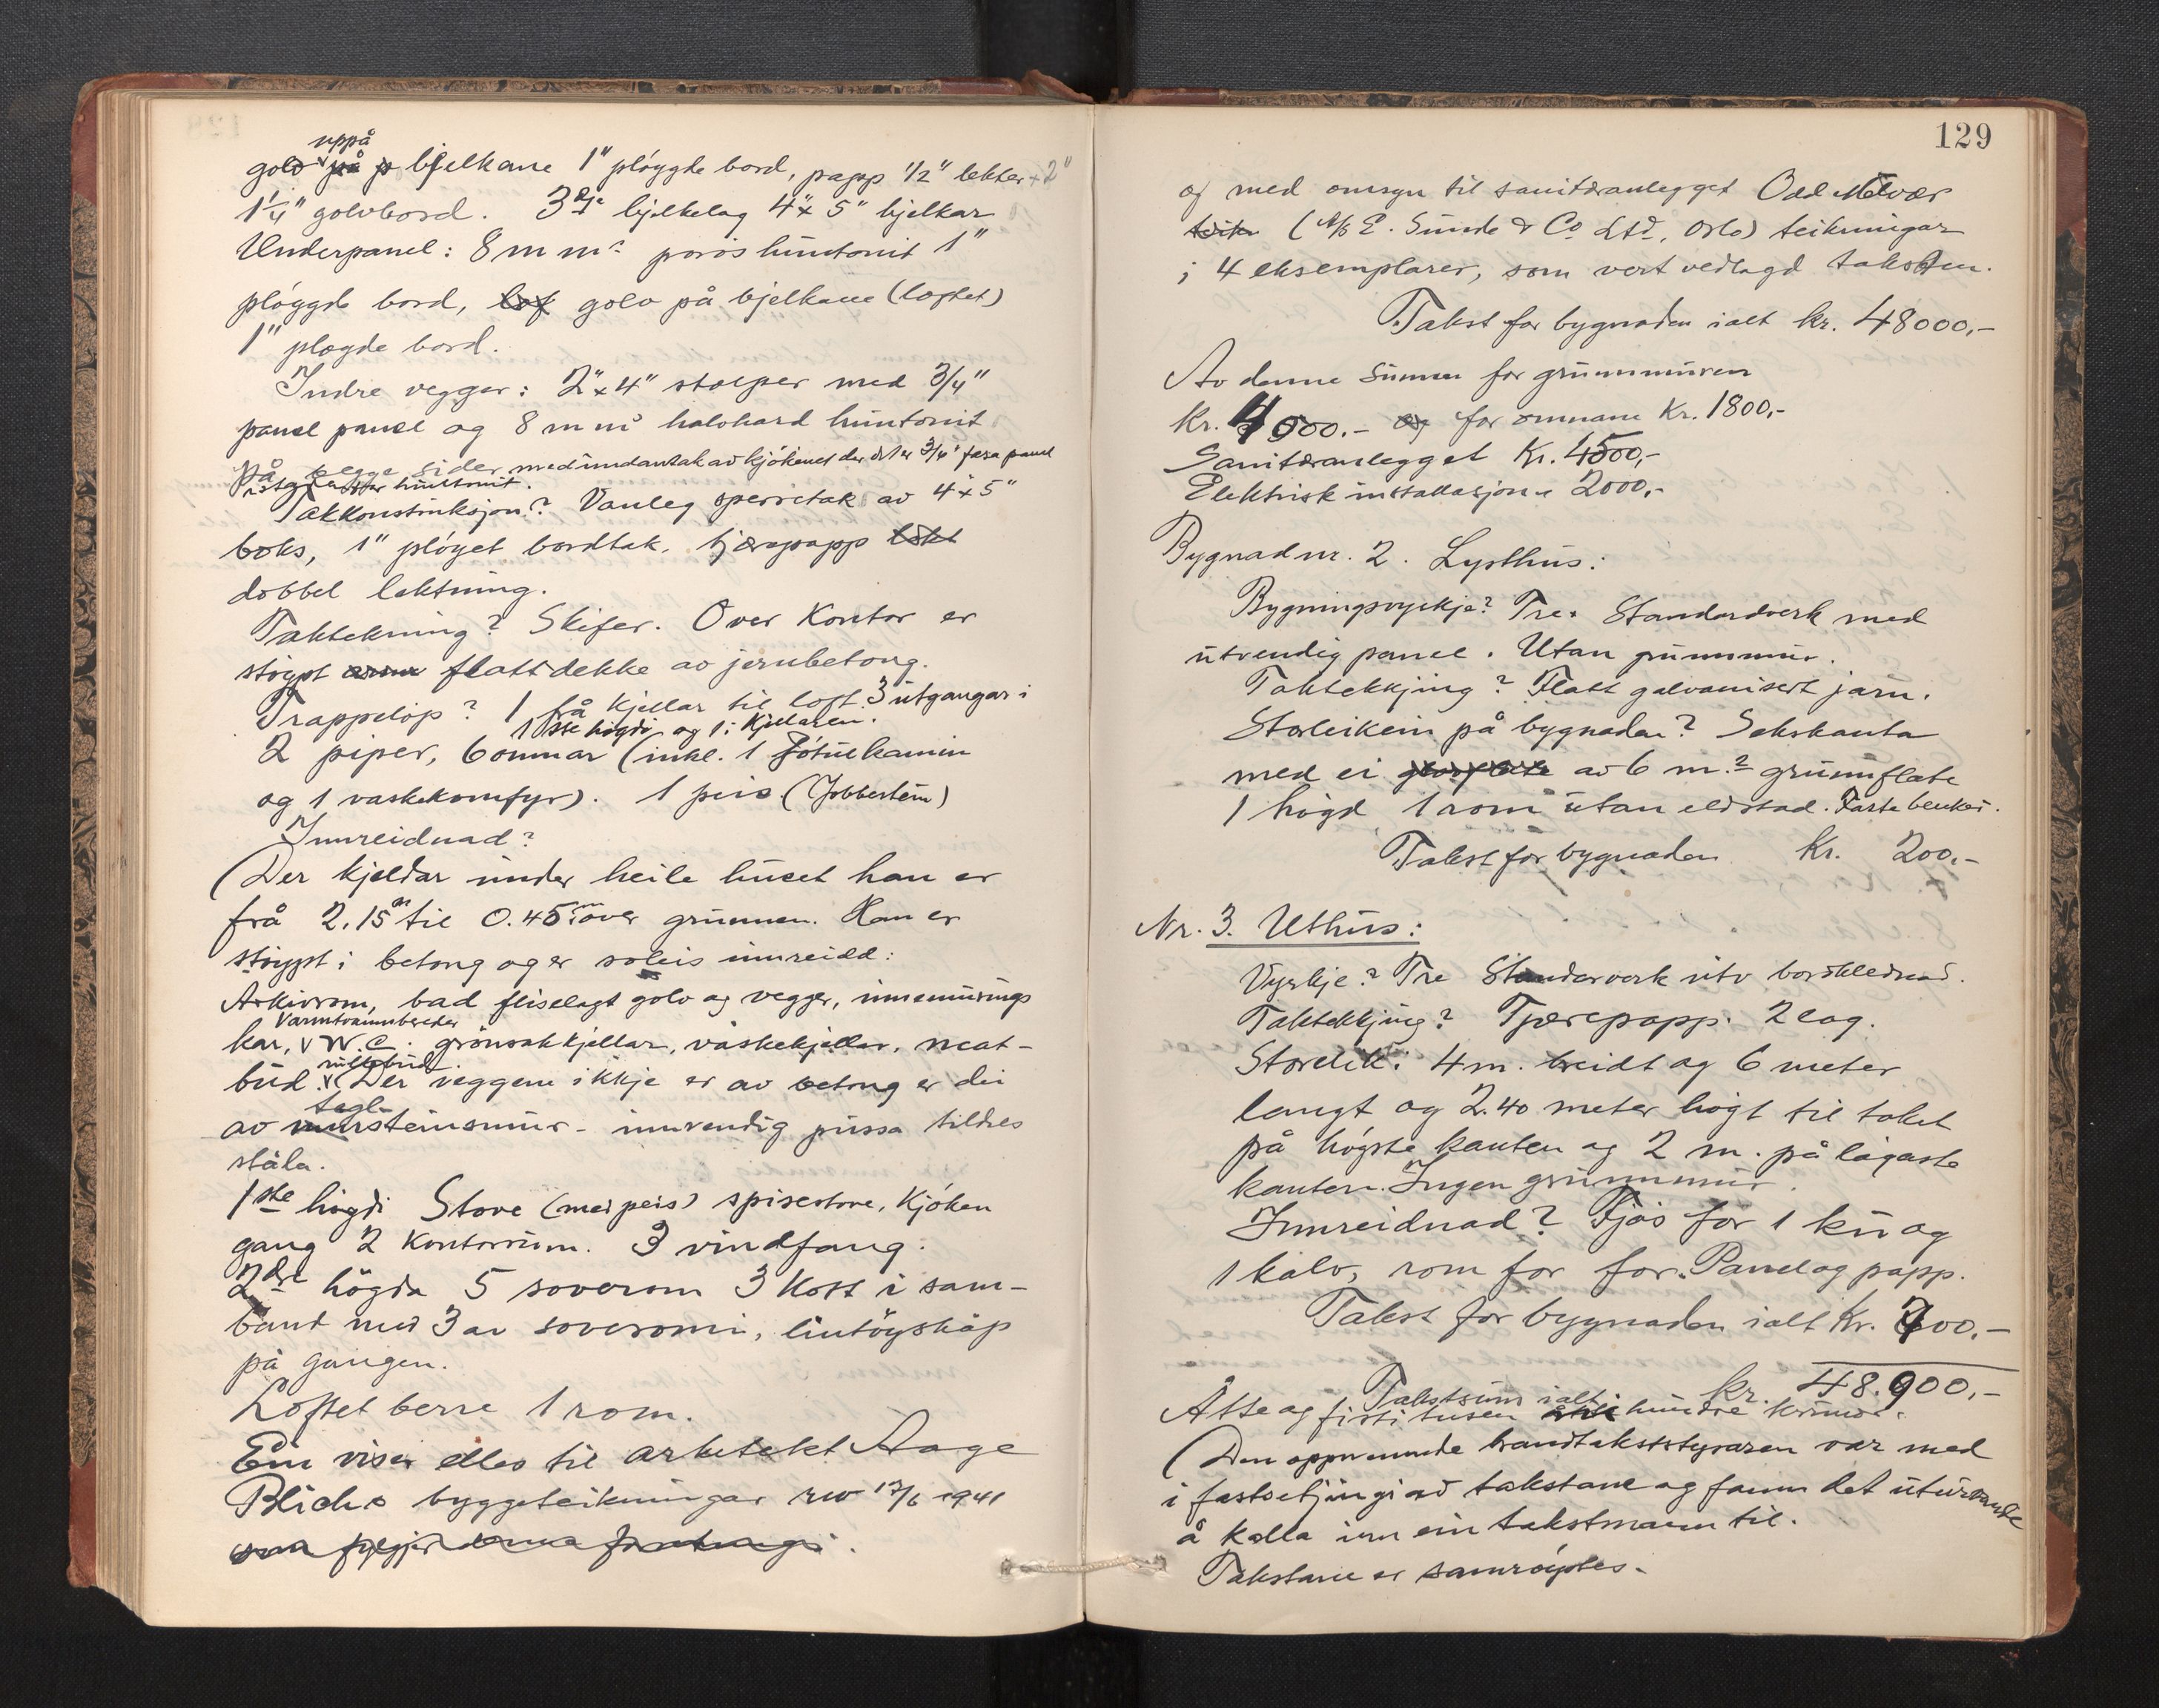 uppå
golv på bjelkane 1" pløygde bord, papp 1/2" lekter + 2"
1 1/4" golvbord. 3dje bjelkelag 4"x 5" bjelkar
Underpanel: 8 m m porøs huntonit 1"
pløggde bord, golv på bjelkane (loftet)
1" pløgde bord.
Indre vegger: 2"x 4" stolper med 3/4"
panel panel og 8 m m halvhard huntonit
på begge sider med undantak av kjøkenet der det er 3/4" fasa panel
istadenfor huntonit.
Takkonstruksjon? Vanleg sperretak av 4"x 5"
boks, 1" pløyet bordtak, tjærepapp
dobbel lektning.
Taktekning? Skifer. Over Kontor er
støypt flatt dekke av jernbetong.
Trappeløp? 1 frå kjellar til loft 3 utgangar i
1ste høgdi og 1 i Kjellaren.
2 piper, 6 omnar (inkl. 1 Jøtulkamin
og 1 vaskekomfyr). 1 peis (Jobbestein)
Innreidnad?
(Der kjeldar under heile huset han er
frå 2.15 m til 0.45 m over grunnen. Han er
støypt i betong og er soleis innreidd:
Arkivrom, bad fliselagt golv og vegger, innemurings
Varmtvannbereder
kar, v W.C. grønsakkjellar, vaskekjellar, mat-
rullebud
bud. v (Der veggene ikkje er av betong er dei
tegl-
av mursteinsmur - innvendig pussa tildes
ståla.
1ste høgdi Stove (med peis) spisestove, Kjøken
gang 2 Kontorrum. 3 vindfang.
2dre högda 5 soverom 3 Kott i sam-
bant med 3 av soveromi, lintöyskåp
på gangen.
Loftet berre 1 rom.
Ein viser elles til arkitekt Aage
Blichs byggeteikningar rev 17/6 1941
som fylgjer denne forretningi.
129
og med omsyn til sanitæranlegget Odd Melvær
(A/S E. Sunde & Co Ltd, Oslo) teikningar
i 4 eksemplarer, som vert vedlagd taksten.
Takst for bygnaden ialt kr. 48000,-
Av denne summen for grunnmuren
Kr. 4000.- og for omnane Kr. 1800,-
Sanitæranlegget Kr. 4500,-
Elektrisk installasjon " 2000,-
Bygnad nr. 2. Lysthus:
Bygningsvyrkje? Tre. Standardverk med
utvendig panel. Utan grunnmur.
Taktekkjing? Flatt galvanisert jarn.
Storleiken på bygnaden? Sekskanta
med ei av 6 m.2 grunnflate
1 høgd 1 rom utan eldstad. Faste benker.
Takst for bygnaden Kr. 200,-
Nr. 3. Uthus:
Vyrkje? Tre Standarverk utv bordklednad.
Taktekkjing? Tjærepapp. 2 lag.
Storleik: 4 m. breidt og 6 meter
langt og 2.40 meter høgt til taket
på høgste kanten og 2 m. på lågaste
kanten. Ingen grunnmur.
Innreidnad? Fjøs for 1 ku og
1 kalv, rom for for. Panel og papp.
Takst for bygnaden ialt Kr. 700,-
Takstsum ialt kr. 48.900,-
Åtte og firti tusen hundre kronor.
(Den oppnemnde brandtakststyraren var med
i fastsetjingi av takstane og fann det uturvande
å kalla inn ein takstmann til.
Takstane er samrøystes.